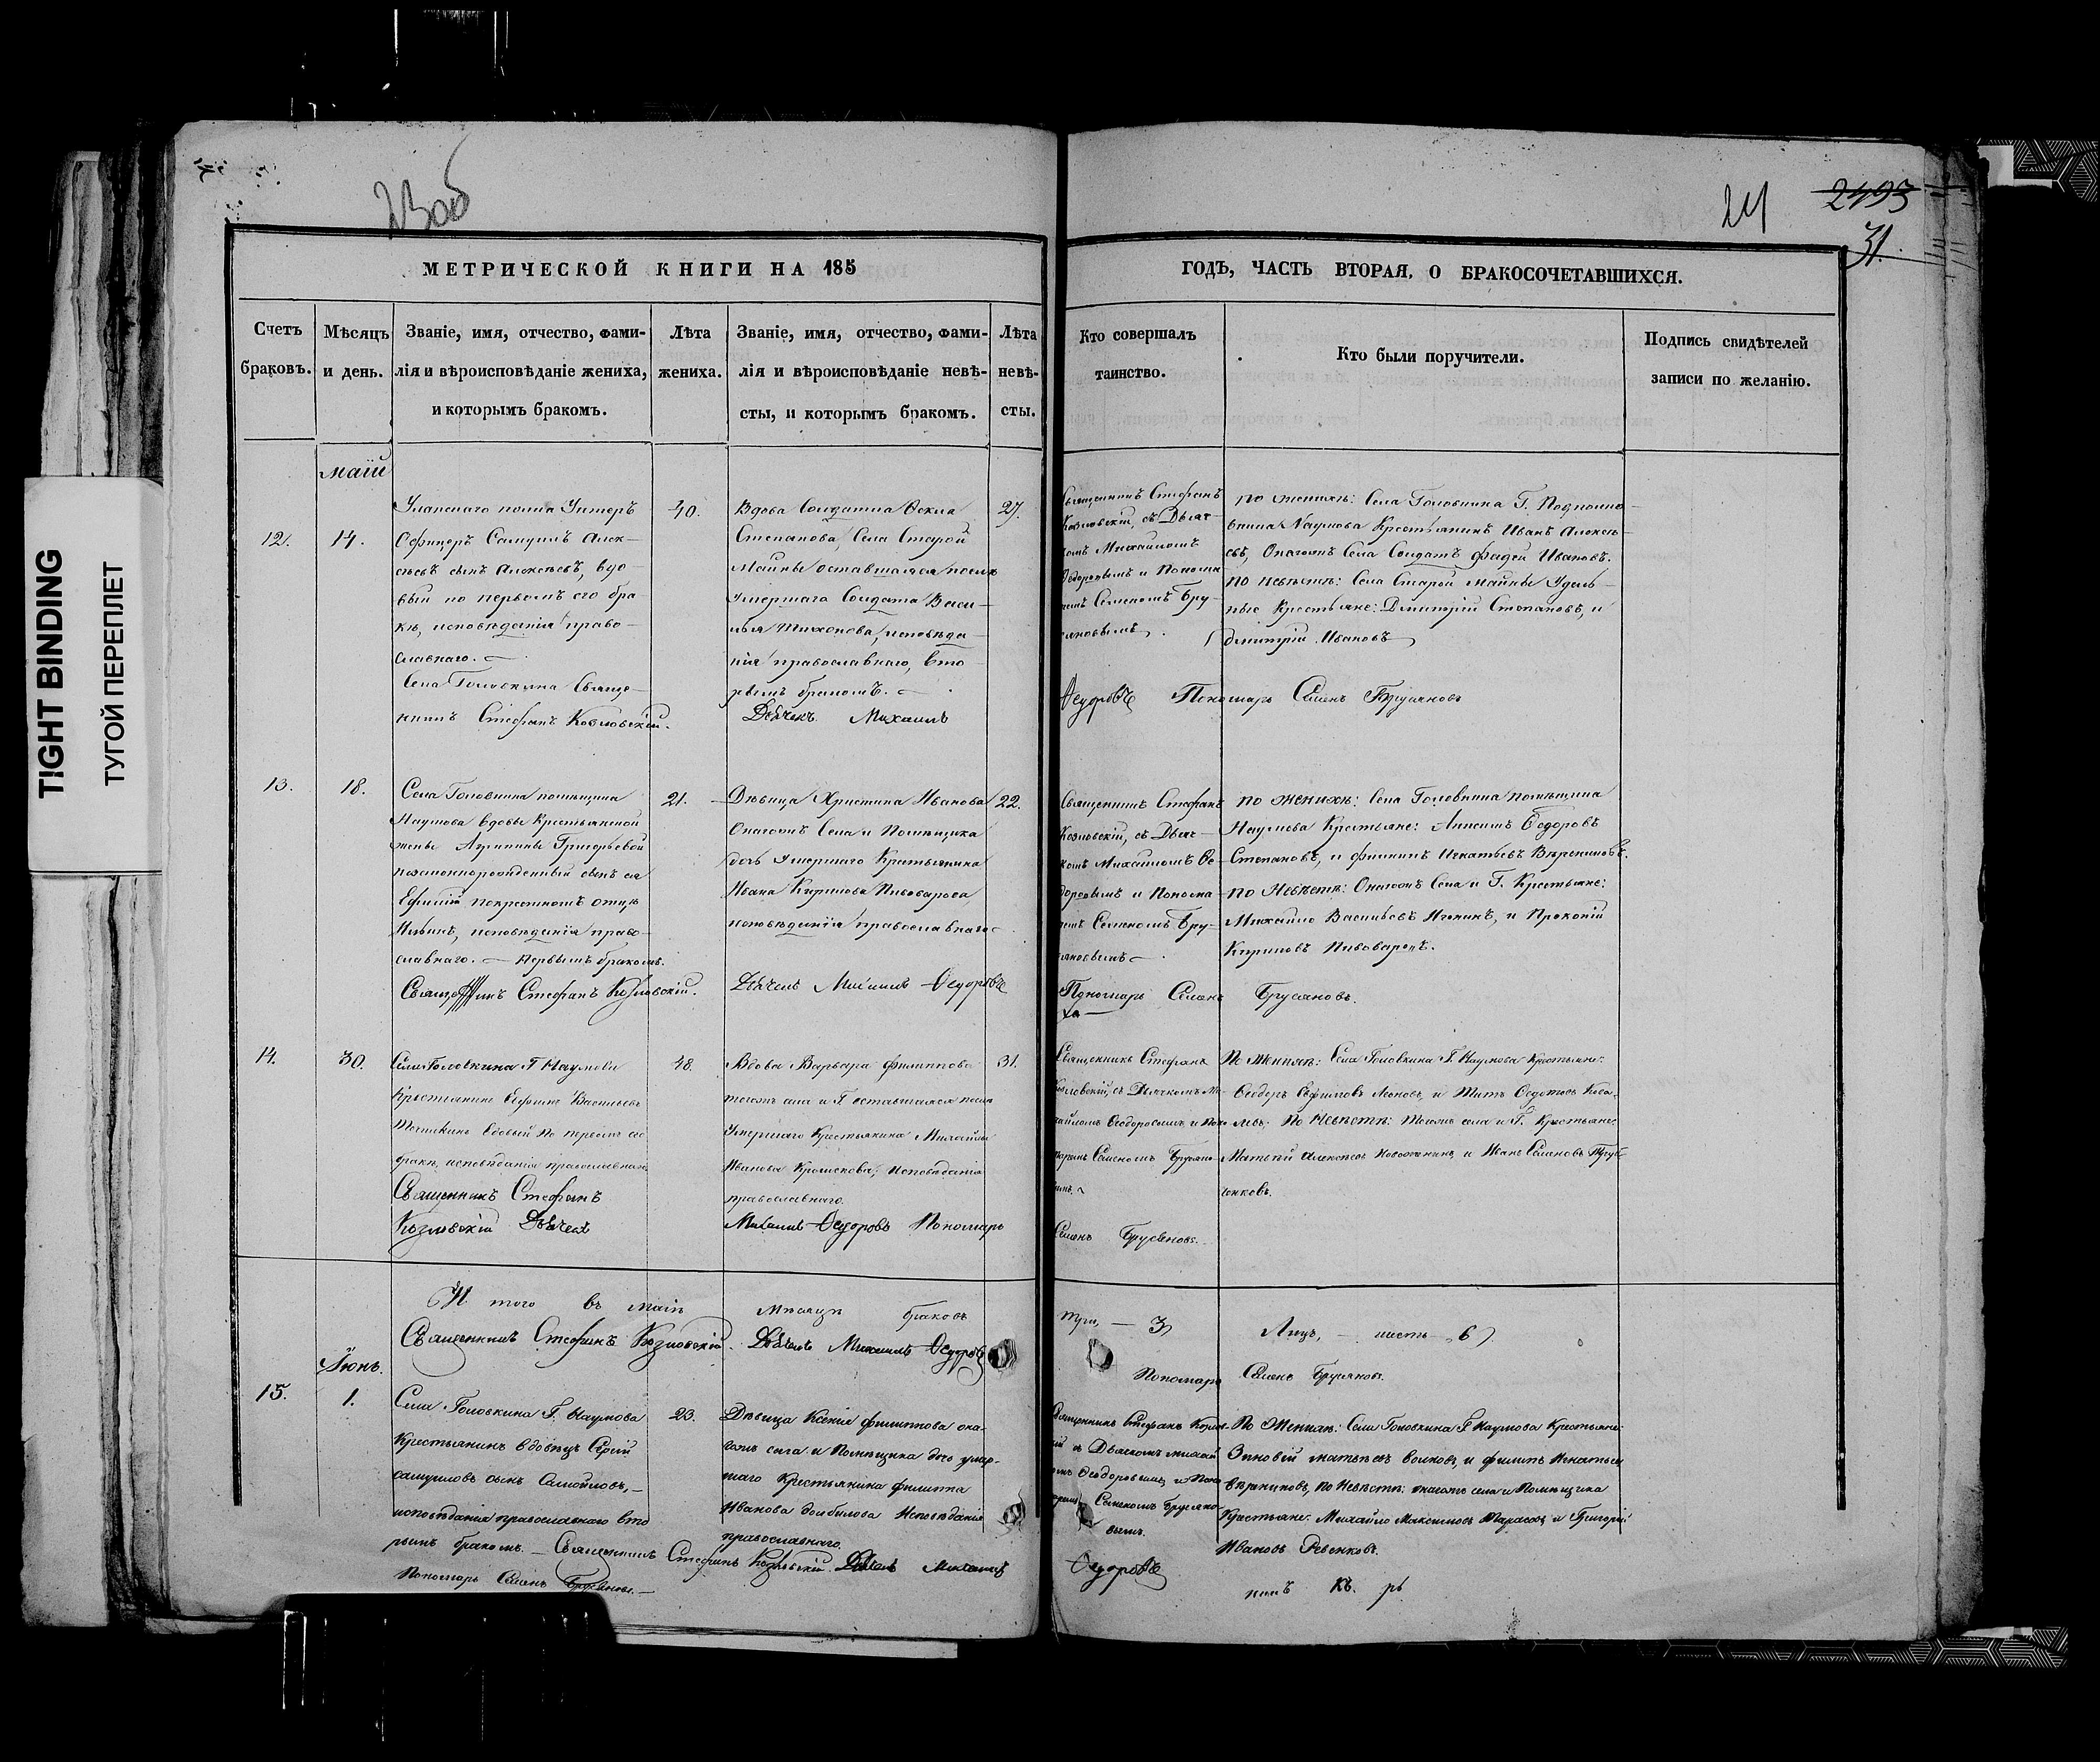 TIGHT BINDING
ТУГОЙ ПЕРЕПЛЕТ
23об
24
2493
31.
МЕТРИЧЕСКОЙ КНИГИ НА 185
Счетъ браковъ.
Мѣсяцъ и день.
Званіе, имя, отчество, фами-
лія и вѣроисповѣданіе жениха,
и которымъ бракомъ.
Лѣта
жениха.
Званіе, имя, отчество, фами-
лія и вѣроисповѣданіе невѣ-
сты, и которымъ бракомъ.
Лѣта
невѣ-
сты.
ГОДЪ, ЧАСТЬ ВТОРАЯ, О БРАКОСОЧЕТАВШИХСЯ.
Кто совершалъ
таинство.
Кто были поручители.
Подпись свидѣтелей
записи по желанію.
маій
12.
14.
Уланскаго полка Унтеръ
Офицеръ Самуилъ Алек-
сѣевъ сынъ Алексѣевъ, вдо-
вый по первомъ его бра-
кѣ, исповѣданія право-
славнаго.
Села Головкина Свяще-
нникъ Стефанъ Козловскій.
40.
Вдова Солдатка Фекла
Степанова, Села Старой
Майны оставшаяся послѣ
Умершаго Солдата Васи-
лья Тихонова, исповѣда-
нія православнаго, вто-
рымъ бракомъ.
Дьячекъ Михаилъ
27.
Священникъ Стефанъ
Козловскій, съ Дьяч-
комъ Михаиломъ
Ѳедоровымъ и Понома
ремъ Семеномъ Бру-
сяновымъ.
по женихѣ: Села Головкина Г. Подполко-
вника Наумова Крестьянинъ Иванъ Алексѣ-
евъ, Онагожъ Села Солдатъ Фадей Ивановъ.
по невѣстѣ: Села Старой Майны Удѣль-
ные Крестьяне: Дмитрій Степановъ, и
Дмитрій Ивановъ
Ѳедоровъ Пономарь Семенъ Брусяновъ
13.
18.
Села Головкина помѣщика
Наумова вдовы Крестьянской
жены Агрипины Григорьевой
незаконнорожденный сынъ ея
Ефимій по крестномъ отцѣ
Ильинъ, исповѣданія право-
славнаго. Первымъ бракомъ.
Священникъ Стефанъ Козловскій.
21.
Дѣвица Христина Иванова
Онагожъ Села и Помѣщика
дочь умершаго Крестьянина
Ивана Кирилова Пивоварова,
исповѣданія православнаго
Дьячекъ Михаилъ Ѳедоровъ
22.
Священникъ Стефанъ
Козловскій, съ Дьяч-
комъ Михаиломъ Ѳе-
доровымъ и Понома-
ремъ Семеномъ Бру-
сяновымъ
по женихѣ: Села Головкина помѣщика
Наумова Крестьяне: Анисимъ Ѳедоровъ
Степановъ, и Филипъ Игнатьевъ Вѣрениновъ.
по Невѣстѣ: Онагожъ Села и Г. Крестьяне:
Михайло Васильевъ Игонинъ, и Прокопій
Кириловъ Пивоваровъ.
Пономарь Семенъ Брусяновъ.
14.
30.
Села Головкина Г. Наумова
Крестьянинъ Ефимъ Васильевъ
вдовый по первомъ его
бракѣ, исповѣданія православнаго
Священникъ Стефанъ
Козловскій Дьячекъ
48.
Вдова Варвара Филиппова
тогожъ села и Г. оставшаяся послѣ
Умершаго Крестьянина Михайлы
Иванова Крошенова, исповѣданія
православнаго.
Михаилъ Ѳедоровъ Пономарь
31.
Священникъ Стефанъ
Козловскій, съ Дьячкомъ Ми-
хайломъ Ѳеодоровымъ и Поно-
маремъ Семеномъ Брусяно-
вымъ.
По Женихѣ: Села Головкина Г. Наумова Крестьяне:
Ѳеодоръ Ефимовъ Леоновъ, и Титъ Ѳедотовъ Кова-
левъ. По Невѣстѣ: Тогожъ села и Г. Крестьяне:
Матвѣй Алексѣевъ Новоженинъ, и Иванъ Семеновъ
Семенъ Брусяновъ.
И того въ маіи мѣсяцѣ браковъ три, — 3) Лицъ, — шесть — 6)
Священникъ Стефанъ Козловскій. Дьячекъ Михаилъ Ѳедоровъ
Пономарь Семенъ Брусяновъ.
Іюнь.
15.
1.
Села Головкина Г. Наумова
Крестьянинъ вдовецъ Сергій
Самуиловъ сынъ Самойловъ,
исповѣданія православнаго вто
рымъ бракомъ. — Священникъ Стефанъ Козловскій. Дьячекъ Михаилъ
Пономарь Семенъ Брусяновъ.
23.
Дѣвица Ксенія Филиппова она-
гожъ села и Помѣщика дочь умер-
шаго Крестьянина Филиппа
Иванова Исповѣданія
православнаго.
Священникъ Стефанъ Козлов-
скій съ Дьячкомъ Михай-
ломъ Ѳеодоровымъ и Поно-
маремъ Семеномъ Брусяно-
вымъ.
По Женихѣ: Села Головкина Г. Наумова Крестьяне:
Зиновій Матвѣевъ Волковъ, и Филипъ Игнатьевъ
По Невѣстѣ: онагожъ села и Помѣщика
Крестьяне: Михайло Максимовъ Тарасовъ и Григорій
Ивановъ Ревенковъ.
Ѳедоровъ